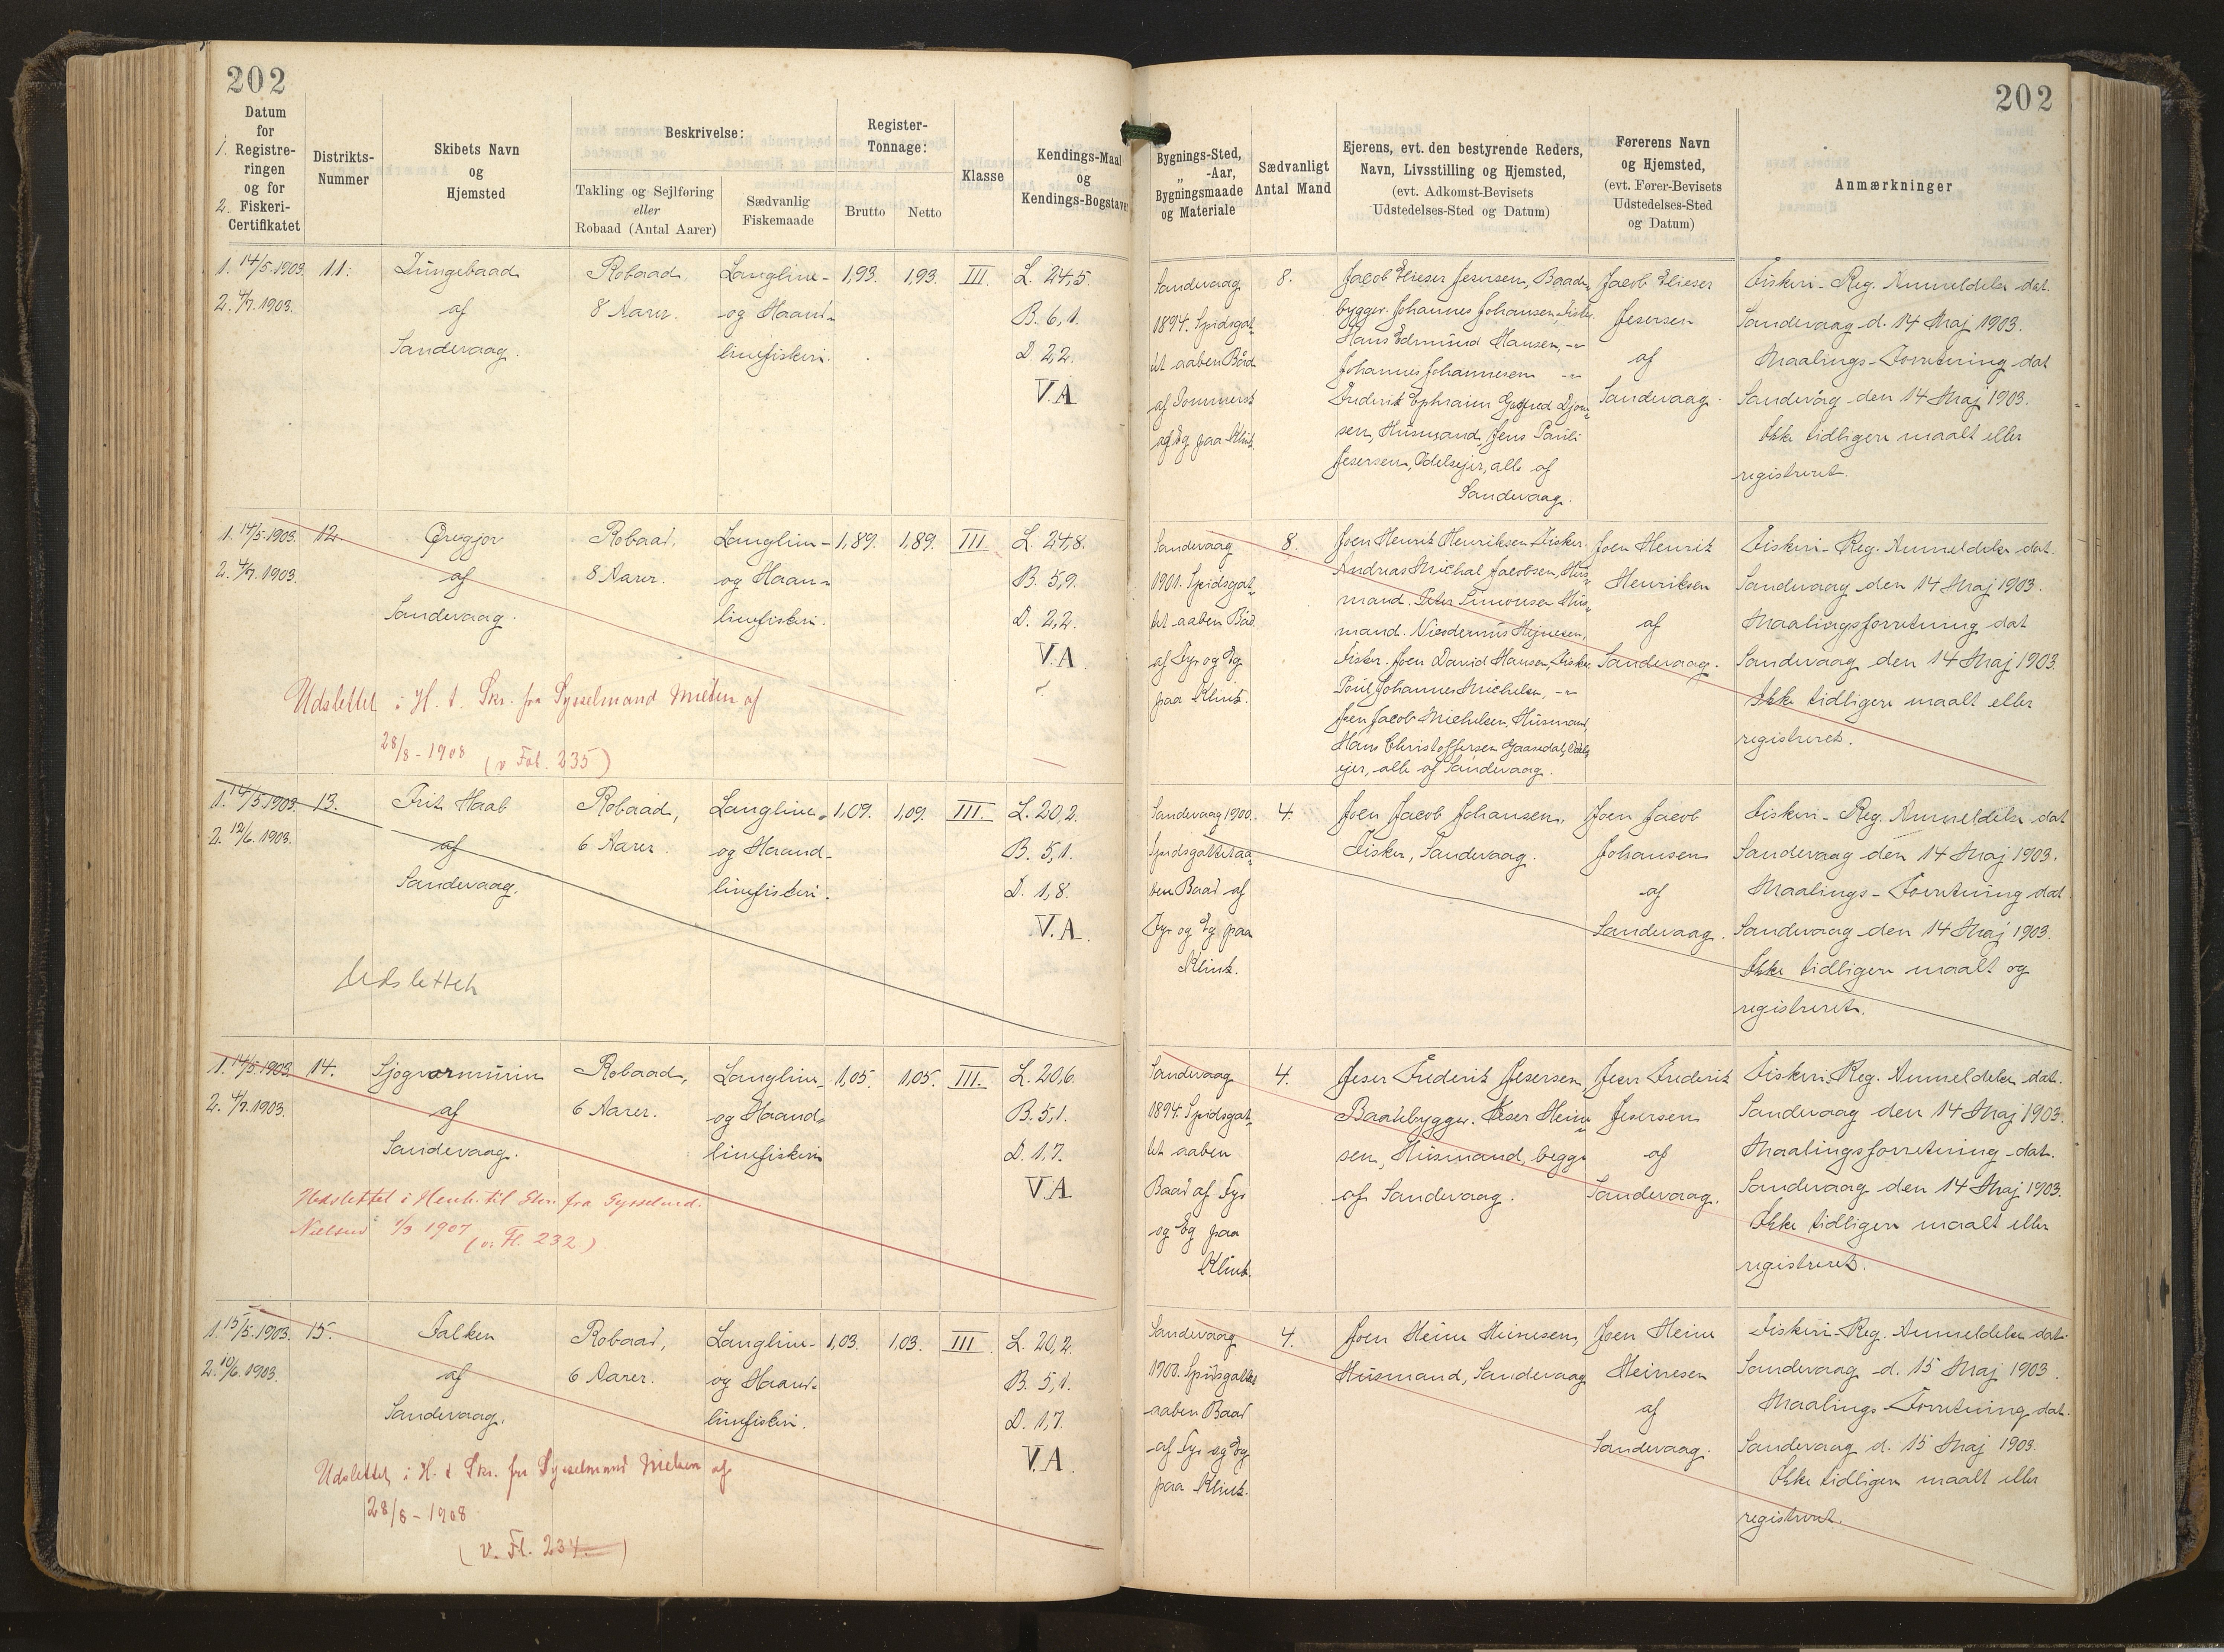 202
202
Datum
for
1. Registre-
ringen
og for
2. Fiskeri-
Certifikatet
Distrikts-
Nummer
Skibets Navn
og
Hjemsted
Beskrivelse:
Takling og Sejlføring
eller
Robaad (Antal Aarer)
Sædvanlig
Fiskemaade
Register-
Tonnage:
Brutto
Netto
Klasse
Kendings-Maal
og
Kendings-Bogstaver
Bygnings-Sted,
„ -Aar,
Bygningsmaade
og Materiale
Sædvanligt
Antal Mand
Ejerens, evt. den bestyrende Reders,
Navn, Livsstilling og Hjemsted,
(evt. Adkomst-Bevisets
Udstedelses-Sted og Datum)
Førerens Navn
og Hjemsted,
(evt. Fører-Bevisets
Udstedelses-Sted
og Datum)
Anmærkninger
1. 14/5 1903.
2. 4/7. 1903.
11.
af
Sandevaag.
Robaad,
8 Aarer.
Langline-
og Haand-
linefiskeri.
1,93.
1,93.
III.
L. 24,5.
B. 6,1.
D. 2,2.
V.A
Sandevaag
1894. Spidsgat-
tet aaben Båd
og Eg paa Klink.
8.
Jacob Elieser Jesersen, Baad-
bygger. Johannes Johansen, Fisker.
Hans Edmund Hansen, -"-
Johannes Johannesen -"-
sen, Husmand, Jens Pauli
Jesersen, Odelsejer, alle af
Sandevaag.
Jacob Elieser
Jesersen
af
Sandevaag.
Fiskeri-Reg. Anmeldelse dat.
Sandevaag d. 14 Maj 1903.
Maalings-Forretning dat
Sandevåg den 14 Maj 1903.
Ikke tidligere maalt eller
registreret.
1. 14/5. 1903.
2. 4/7. 1903.
12.
af
Sandevaag.
Robaad,
8 Aarer.
Langline-
og Haan-
linefiskeri.
1,89.
1,89.
III
L. 24,8.
B. 5,9.
D. 2,2.
V.A
Udslettet i H. t. Skr. fra Sysselmand Nielsen af
28/8 - 1908 (v Fol. 235)
Sandevaag
1901. Spidsgat-
tet aaben Båd
af Fyr og Eg
paa Klink.
8.
Joen Henrik Henriksen Fisker.
Andreas Michal Jacobsen, Hus-
mand. Peter Simonsen Hus-
mand. Hejnesen,
Fisker. Joen David Hansen, Fisker.
Poul Johannes Michelsen, -"-
Joen Jacob Michelsen, Husmand,
Hans Christoffersen Gaasedal, Odels-
ejer, alle af Sandevaag.
Joen Henrik
Henriksen
af
Sandevaag.
Fiskeri-Reg. Anmeldelse dat.
Sandevaag den 14 Maj 1903.
Maalingsforretning dat
Sandevaag den 14 Maj 1903.
Ikke tidligere maalt eller
registreret.
1. 14/5 1903.
2. 12/6. 1903.
13.
Frit Haab
af
Sandevaag.
Robaad,
6 Aarer.
Langline-
og Haand-
linefiskeri.
1,09.
1,09.
III.
L. 20,2.
B. 5,1.
D. 1,8.
V.A.
Udslettet
Sandevaag 1900.
Spidsgattet aa-
ben Baad af
Fyr og Eg paa
Klink.
4.
Joen Jacob Johansen,
Fisker, Sandevaag.
Joen Jacob
Johansen
af
Sandevaag.
Fiskeri-Reg. Anmeldelse dat
Sandevaag den 14 Maj 1903.
Maalings-Forretning dat
Sandevaag den 14 Maj 1903.
Ikke tidligere maalt og
registreret.
1. 14/5. 1903.
2. 4/7. 1903.
14.
Sjogvarmurin
af
Sandevaag.
Robaad,
6 Aarer.
Langline-
og Haand-
linefiskeri
1,05.
1,05.
III.
L. 20,6.
B. 5,1.
D. 1,7.
V.A
Udslettet i Henh. til Skr. fra Sysselmd.
Nielsen 1/3 1907
(v. Fl. 232)
Sandevaag
1894. Spidsgat-
tet aaben
Baad af Fyr
og Eg paa
Klink.
4.
Jeser Frederik Jesersen,
Baadebygger. Jeser Heine-
sen, Husmand, begge
af Sandevaag.
Jeser Frederik
Jesersen
af
Sandevaag.
Fiskeri-Reg. Anmeldelse dat.
Sandevaag den 14 Maj 1903.
Maalingsforretning dat.
Sandevaag den 14 Maj 1903.
Ikke tidligere maalt eller
registreret.
1. 15/5. 1903.
2. 10/6. 1903.
15.
Falken
af
Sandevaag.
Robaad,
6 Aarer.
Langline-
og Haand-
linefiskeri.
1,03.
1,03.
III.
L. 20,2.
B. 5,1.
D. 1,7.
V.A.
Udslettet i H. t Skr. fra Sysselmand Nielsen af
28/8 - 1908
(v. Fl. 234.)
Sandevaag
1900. Spidsgattet
aaben Baad
af Fyr og Eg
paa Klink.
4.
Joen Heine Heinesen,
Husmand, Sandevaag
Joen Heine
Heinesen
af
Sandevaag.
Fiskeri-Reg. Anmeldelse dat.
Sandevaag d. 15 Maj 1903.
Maalings-Forretning dat.
Sandevaag d. 15 Maj 1903.
Ikke tidligere maalt eller
registreret.